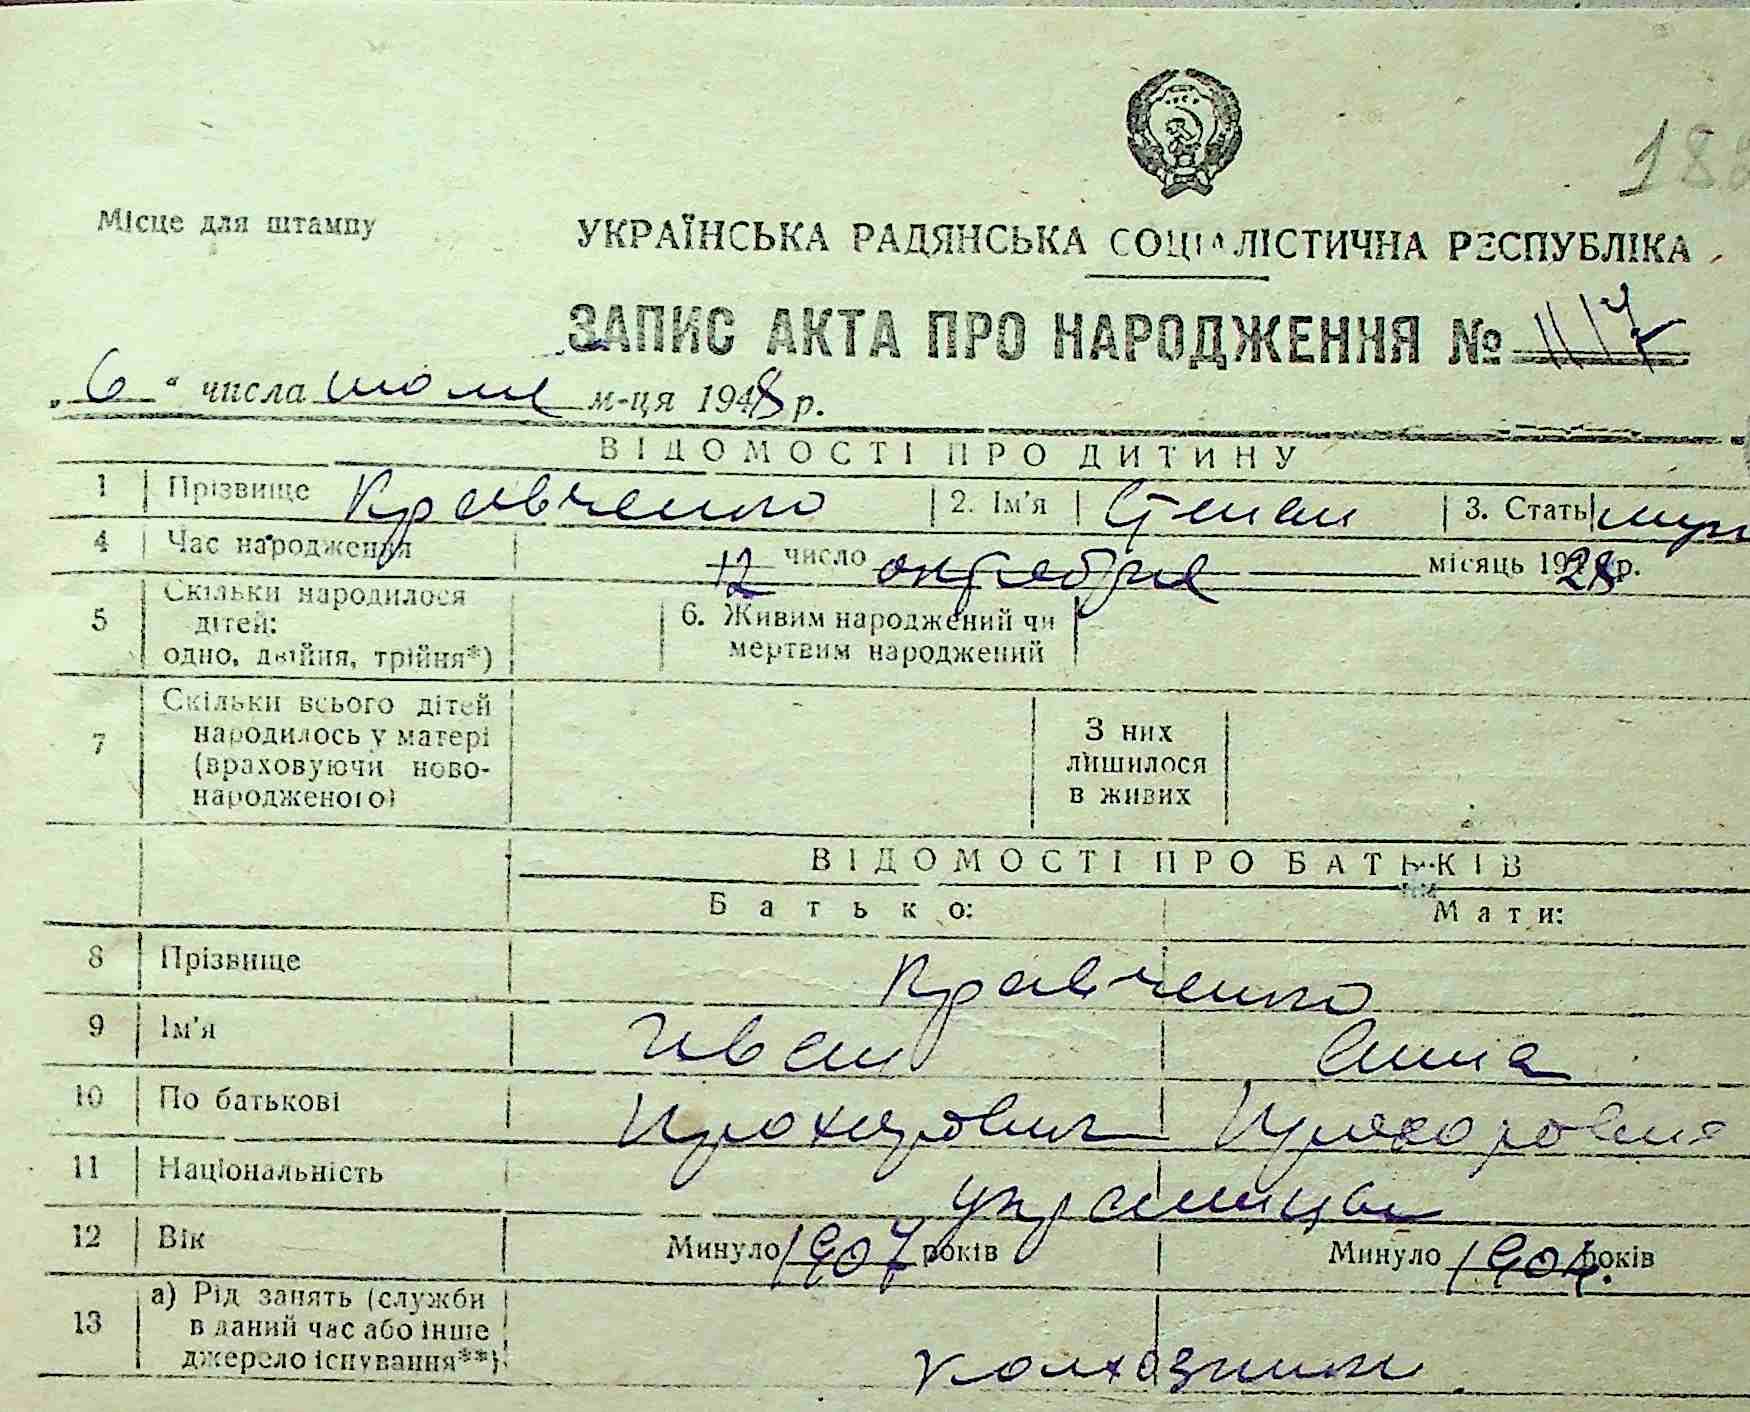 188
Місце для штампу
УКРАЇНСЬКА РАДЯНСЬКА СОЦІАЛІСТИЧНА РЕСПУБЛІКА
ЗАПИС АКТА ПРО НАРОДЖЕННЯ №
„6“ числа июля м-ця 1948 р.
ВІДОМОСТІ ПРО ДИТИНУ
1 Прізвище Кравченко 2. Ім'я Степан 3. Стать муж
4 Час народження 12 число октября місяць 1928 р.
5 Скільки народилося дітей: одно, двійня, трійня*) 6. Живим народжений чи мертвим народжений
7 Скільки всього дітей народилось у матері (враховуючи новонародженого) З них лишилося в живих
ВІДОМОСТІ ПРО БАТЬКІВ
Батько: Мати:
8 Прізвище Кравченко
9 Ім'я Иван Анна
10 По батькові Прохорович Прохоровна
11 Національність украинцы
12 Вік Минуло 1907 років Минуло 1904 років
13 а) Рід занять (служби в даний час або інше джерело існування**) колхозники